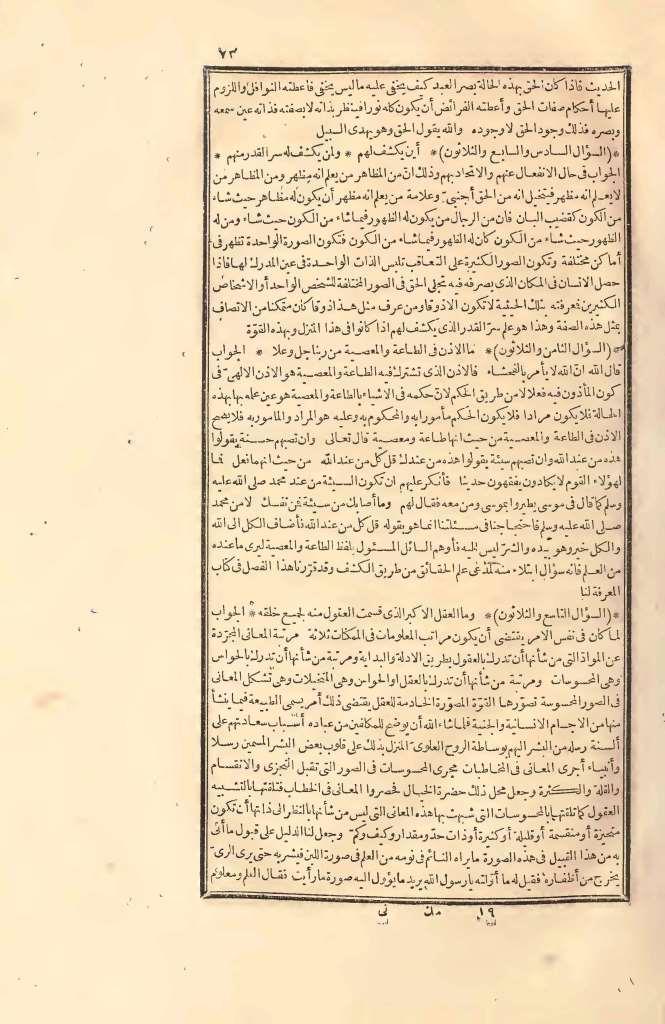 ٧٣
الحديث فاذا كان الحق بهذه الحالة بصر العبد كيف يخفى عليه ما ليس يخفى فأعطته النوافل واللزوم
عليها أحكام صفات الحق وأعطته الفرائض أن يكون كله نورا فينظر بذاته لا بصفته فذاته عين سمعه
وبصره فذلك وجود الحق لا وجوده والله يقول الحق وهو يهدى السبيل
*(السؤال السادس والسابع والثلاثون)* أين يكشف لهم * ولمن يكشف له سر القدر منهم *
الجواب فى حال الانفعال عنهم والاتحاد بهم وذلك انّ من المظاهر من يعلم انه مظهر ومن المظاهر من
لا يعلم انه مظهر فيتخيل انه من الحق أجنبىّ وعلامة من يعلم انه مظهر أن يكون له مظاهر حيث شاء
من الكون كقضيب البان فان من الرجال من يكون له الظهور فيما شاء من الكون لا حيث شاء ومن له
الظهور حيث شاء من الكون كان له الظهور فيما شاء من الكون فتكون الصورة الواحدة تظهر فى
أماكن مختلفة وتكون الصور الكثيرة على التعاقب تلبس الذات الواحدة فى عين المدرك لها فاذا
حصل الانسان فى المكان الذى يصرفه فيه تجلى الحق فى الصور المختلفة للشخص الواحد أو الاشخاص
الكثيرين فمعرفته بتلك الحيثية لا تكون الا ذوقا ومن عرف مثل هذا ذوقا كان متمكنا من الاتصاف
بمثل هذه الصفة وهذا هو علم سرّ القدر الذى يكشف لهم اذا كانوا فى هذا المنزل وبهذه القوّة
*(السؤال الثامن والثلاثون)* ما الاذن فى الطاعة والمعصية من ربنا جل وعلا * الجواب
قال الله انّ الله لا يأمر بالفحشاء فالاذن الذى تشترك فيه الطاعة والمعصية هو الاذن الالهىّ فى
كون المأذون فيه فعلا لا من طريق الحكم لانّ حكمه فى الاشياء بالطاعة والمعصية هو عين علمه بها بهذه
الحالة فلا يكون مرادا فلا يكون الحكم مأمورا به والمحكوم به وعليه هو المراد والمأمور به فلا يصح
الاذن فى الطاعة والمعصية من حيث انها طاعة ومعصية قال تعالى وان تصبهم حسنة يقولوا
هذه من عند الله وان تصبهم سيئة يقولوا هذه من عندك قل كل من عند الله من حيث انهما فعل فما
لهؤلاء القوم لا يكادون يفقهون حديثا فأنكر عليهم ان تكون السيئة من عند محمد صلى الله عليه
وسلم كما قال فى موسى يطيروا بموسى ومن معه فقال لهم وما أصابك من سيئة فمن نفسك لا من محمد
صلى الله عليه وسلم فاحتجاجنا فى مسئلتنا انما هو بقوله قل كل من عند الله فأضاف الكل الى الله
والكل خير وهو بيده والشرّ ليس اليه فأوهم السائل المسئول بلفظ الطاعة والمعصية ليرى ما عنده
من العلم فانه سؤال ابتلاء منه لمدّعى علم الحقائق من طريق الكشف وقد قرّرنا هذا الفصل فى كتاب
المعرفة لنا
*(السؤال التاسع والثلاثون)* وما العقل الاكبر الذى قسمت العقول منه لجميع خلقه * الجواب
لما كان فى نفس الامر يقتضى أن يكون مراتب المعلومات فى الممكنات ثلاثة مرتبة المعانى المجرّدة
عن الموادّ التى من شأنها أن تدرك بالعقول بطريق الادلة والبداية ومرتبة من شأنها أن تدرك بالحواس
وهى المحسوسات ومرتبة من شأنها أن تدرك بالعقل أو الحواس وهى المتخيلات وهى تشكل المعانى
فى الصور المحسوسة تصوّرها القوّة المصوّرة الخادمة للعقل يقتضى ذلك أمر يسمى الطبيعة فيما ينشأ
منها من الاجسام الانسانية والجنية فلما شاء الله أن يوضح للمكلفين من عباده أسباب سعادتهم على
ألسنة رسله من البشر اليهم بوساطة الروح العلوى المنزل بذلك على قلوب بعض البشر المسمين رسلا
وأنبياء أجرى المعانى فى المخاطبات مجرى المحسوسات فى الصور التى تقبل التجزى والانقسام
والقلة والكثرة وجعل محل ذلك حضرة الخيال فحصروا المعانى فى الخطاب فتلقتها بالتشبيه
العقول كما تلقتها بالمحسوسات التى شبهت بها هذه المعانى التى ليس من شأنها بالنظر الى ذاتها أن تكون
متحيزة أو منقسمة أو قليلة أو كثيرة أو ذات حدّ ومقدار وكيف وكمّ وجعل لنا الدليل على قبول ما أتى
به من هذا القبيل فى هذه الصورة ما يراه النائم فى نومه من العلم فى صورة اللبن فيشربه حتى يرى الرىّ
يخرج من أظفاره فقيل له ما أوّلته يا رسول الله يريد ما يؤول اليه صورة ما رأيت فقال العلم ومعلوم
١٩ مك نى